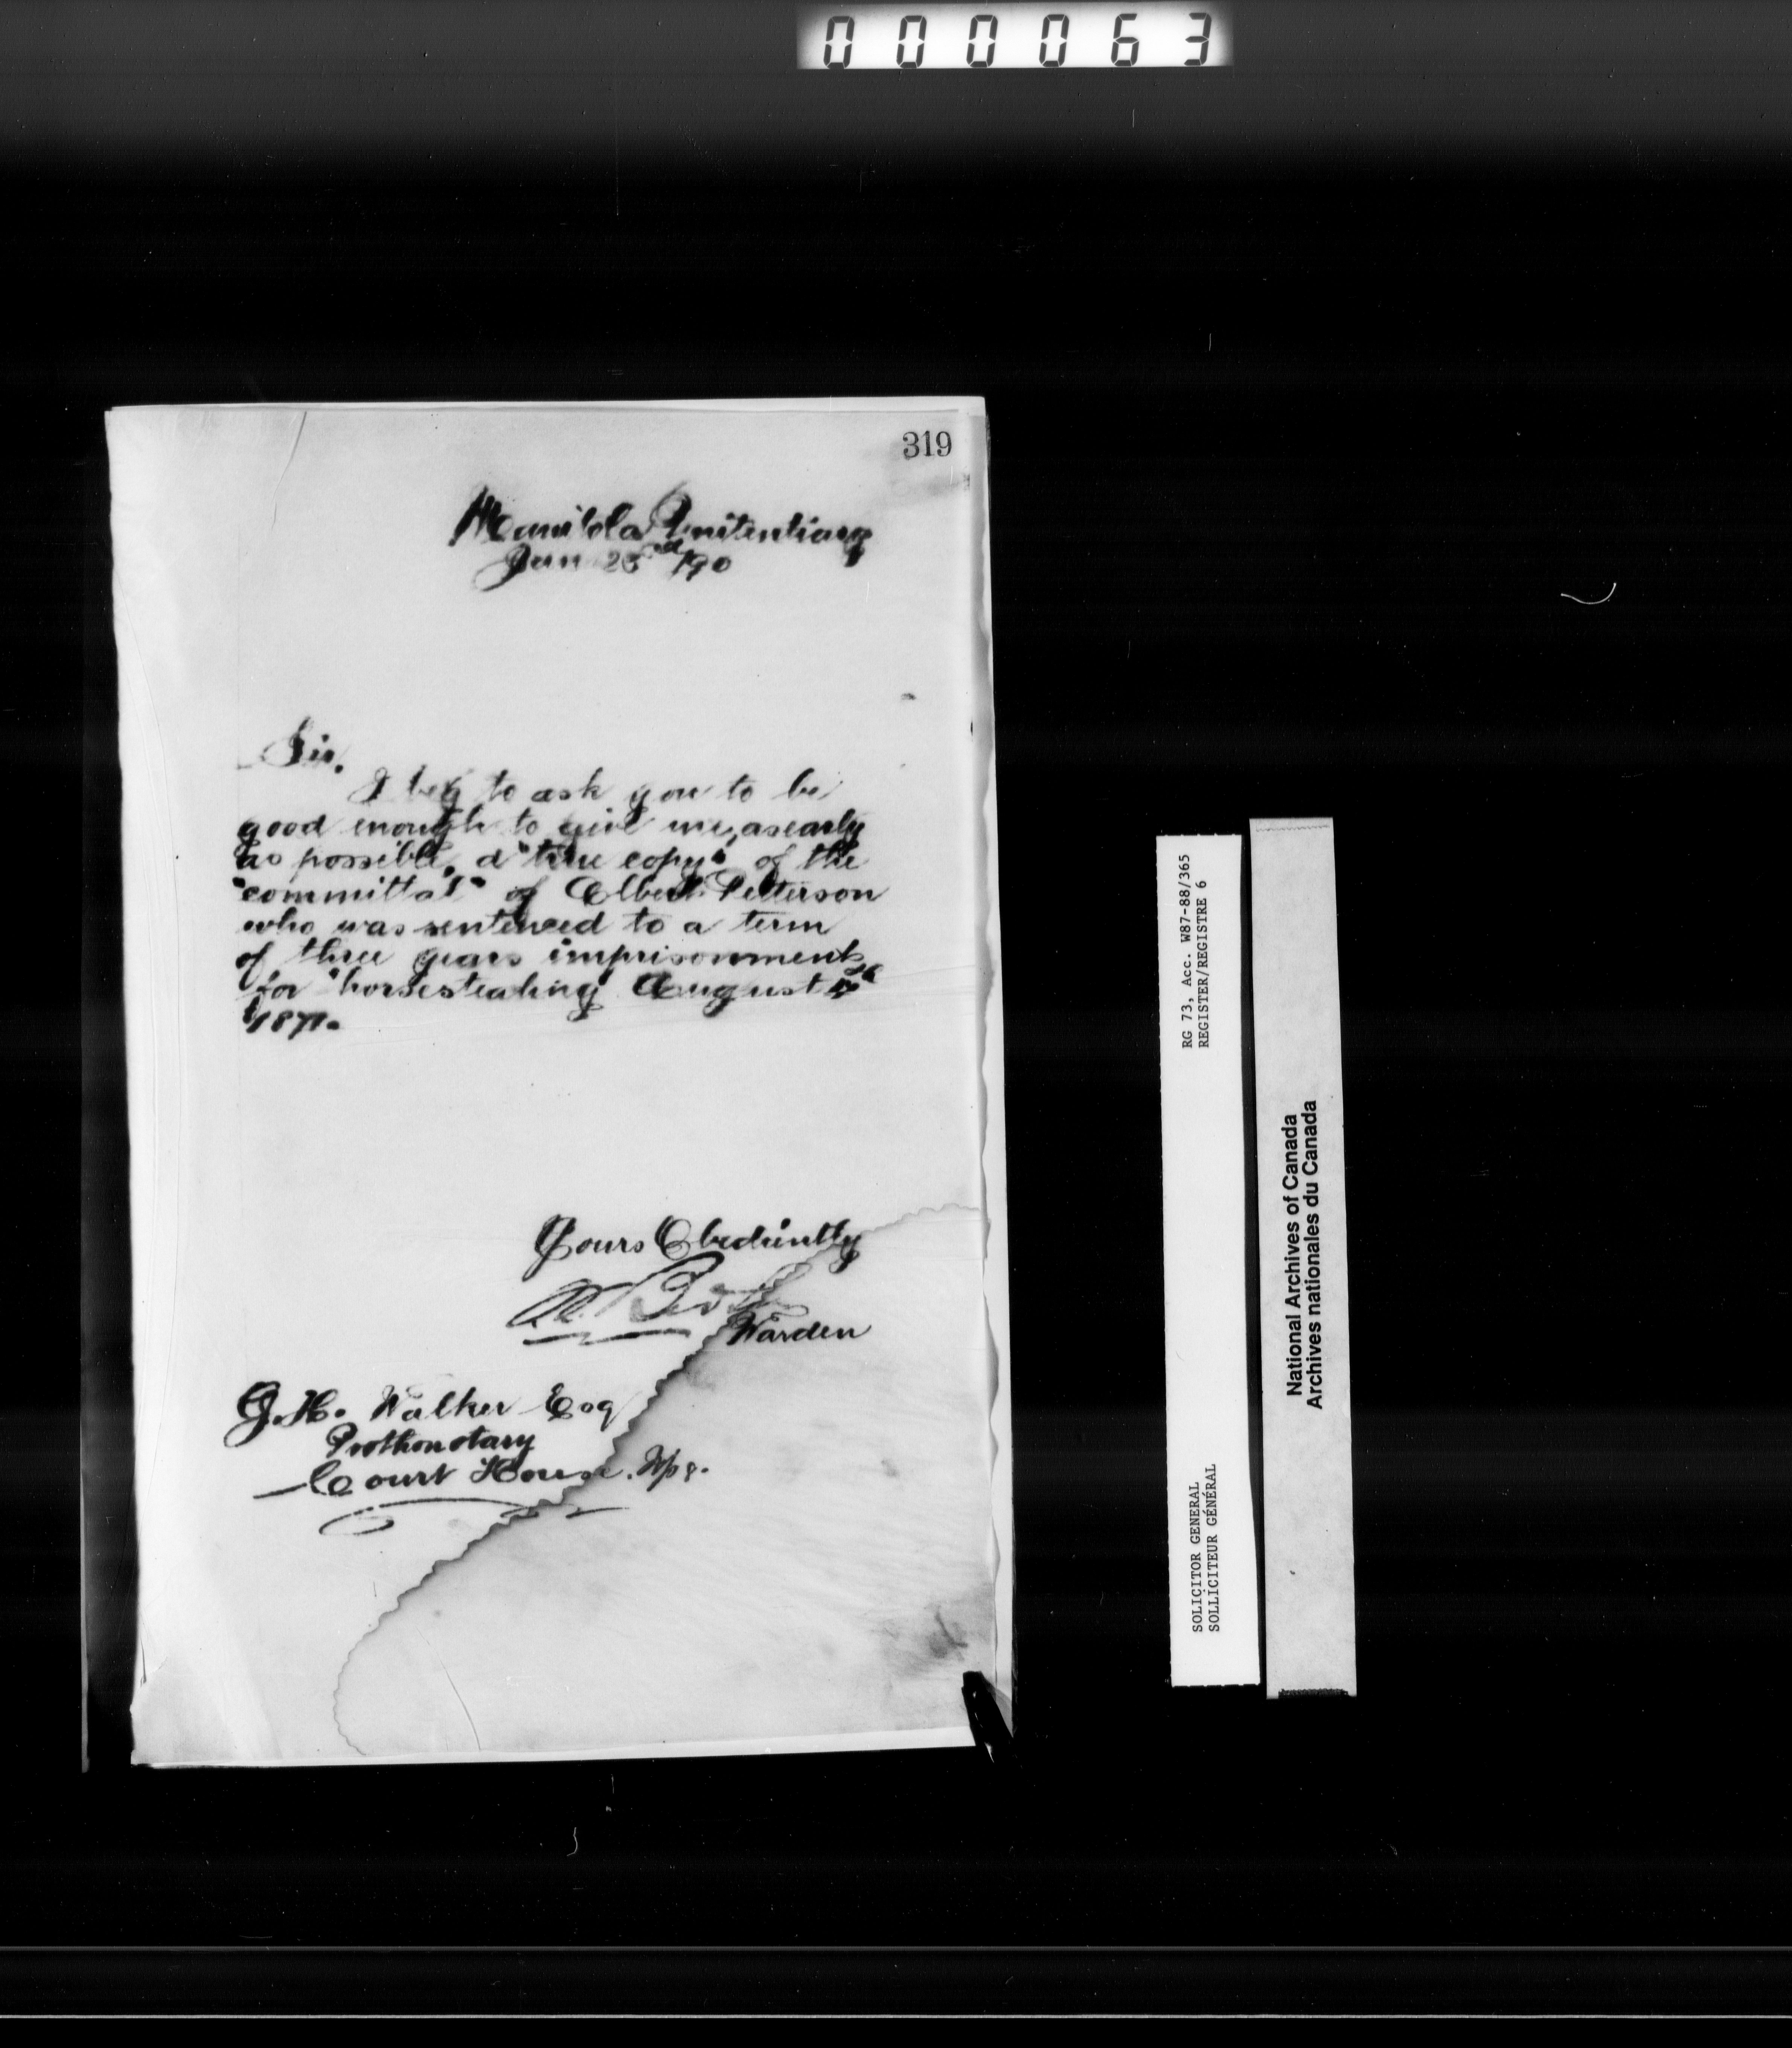 000063
319
Manitoba Penitentiary
Jan 23rd /90
Sir.
I beg to ask you to be
good enough to give me, as early
as possible, a "true copy", of the
"committal" of Elbert Petterson
who was sentenced to a term
of three years imprisonment
for "horsestealing" August
187
Yours Obediently
Warden
G. H. Walker Esq
Prothonotary
Court House. Wpg.
RG 73, Acc. W87-88/365
REGISTER/REGISTRE 6
SOLICITOR GENERAL
SOLLICITEUR GÉNÉRAL
National Archives of Canada
Archives nationales du Canada